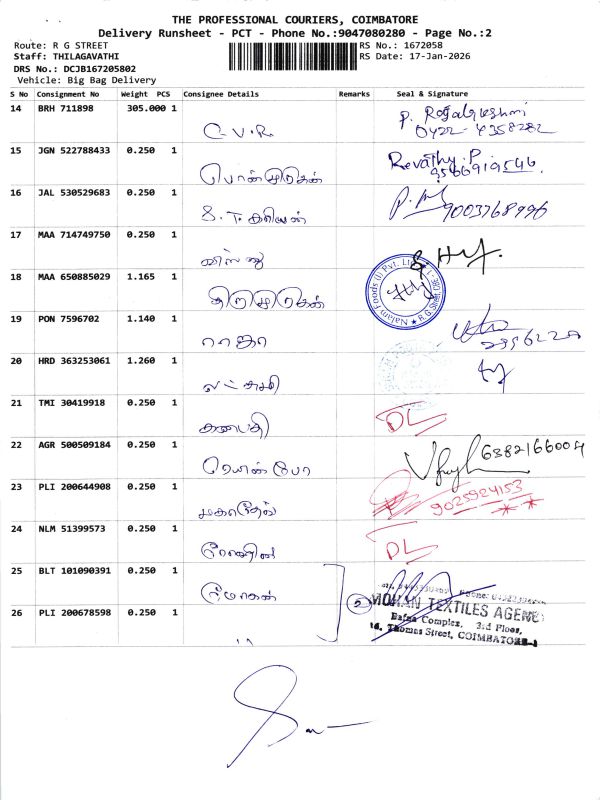 THE PROFESSIONAL COURIERS, COIMBATORE
Delivery Runsheet - PCT - Phone No.:9047080280 - Page No.:2
Route: R G STREET
RS No.: 1672058
Staff: THILAGAVATHI
RS Date: 17-Jan-2026
DRS No.: DCJB167205802
Vehicle: Big Bag Delivery
S No Consignment No Weight PCS Consignee Details Remarks Seal & Signature
14 BRH 711898 305.000 1 C.V.R. P. Rajalakshmi
0422-4358282
15 JGN 522788433 0.250 1 பொன்முருகன் Revathy.P
9566919546
16 JAL 530529683 0.250 1 S.T. 9003768996
17 MAA 714749750 0.250 1 விஸ்ணு
18 MAA 650885029 1.165 1 திருமுருகன் Nalam Foods (I) Pvt. Ltd.
19 PON 7596702 1.140 1 ராஜா
20 HRD 363253061 1.260 1 லட்சுமி
21 TMI 30419918 0.250 1 கணபதி DL
22 AGR 500509184 0.250 1 ரெயின்போ 6382166004
23 PLI 200644908 0.250 1 மகாதேவ் 9025924153
24 NLM 51399573 0.250 1 DL
25 BLT 101090391 0.250 1 மோகன்
26 PLI 200678598 0.250 1 " 2 MOHAN TEXTILES AGENC
Bafna Complex, 3rd Floor,
Thomas Street, COIMBATORE-1